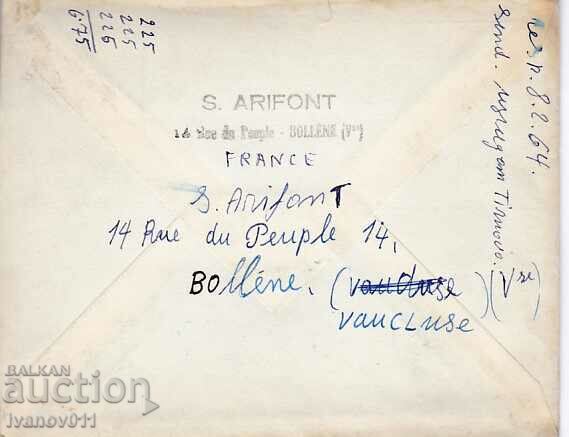 S. ARIFONT
14 Rue du Peuple - BOLLÈNE (Vse)
FRANCE
S. Arifont
14 Rue du Peuple 14,
BOllène. (vaucluse)
VAUCLUSE
(Vse)
225
225
225
6.75
8.2.64.
send.
Tirnovo.
BALKAN
auction
ivanov011